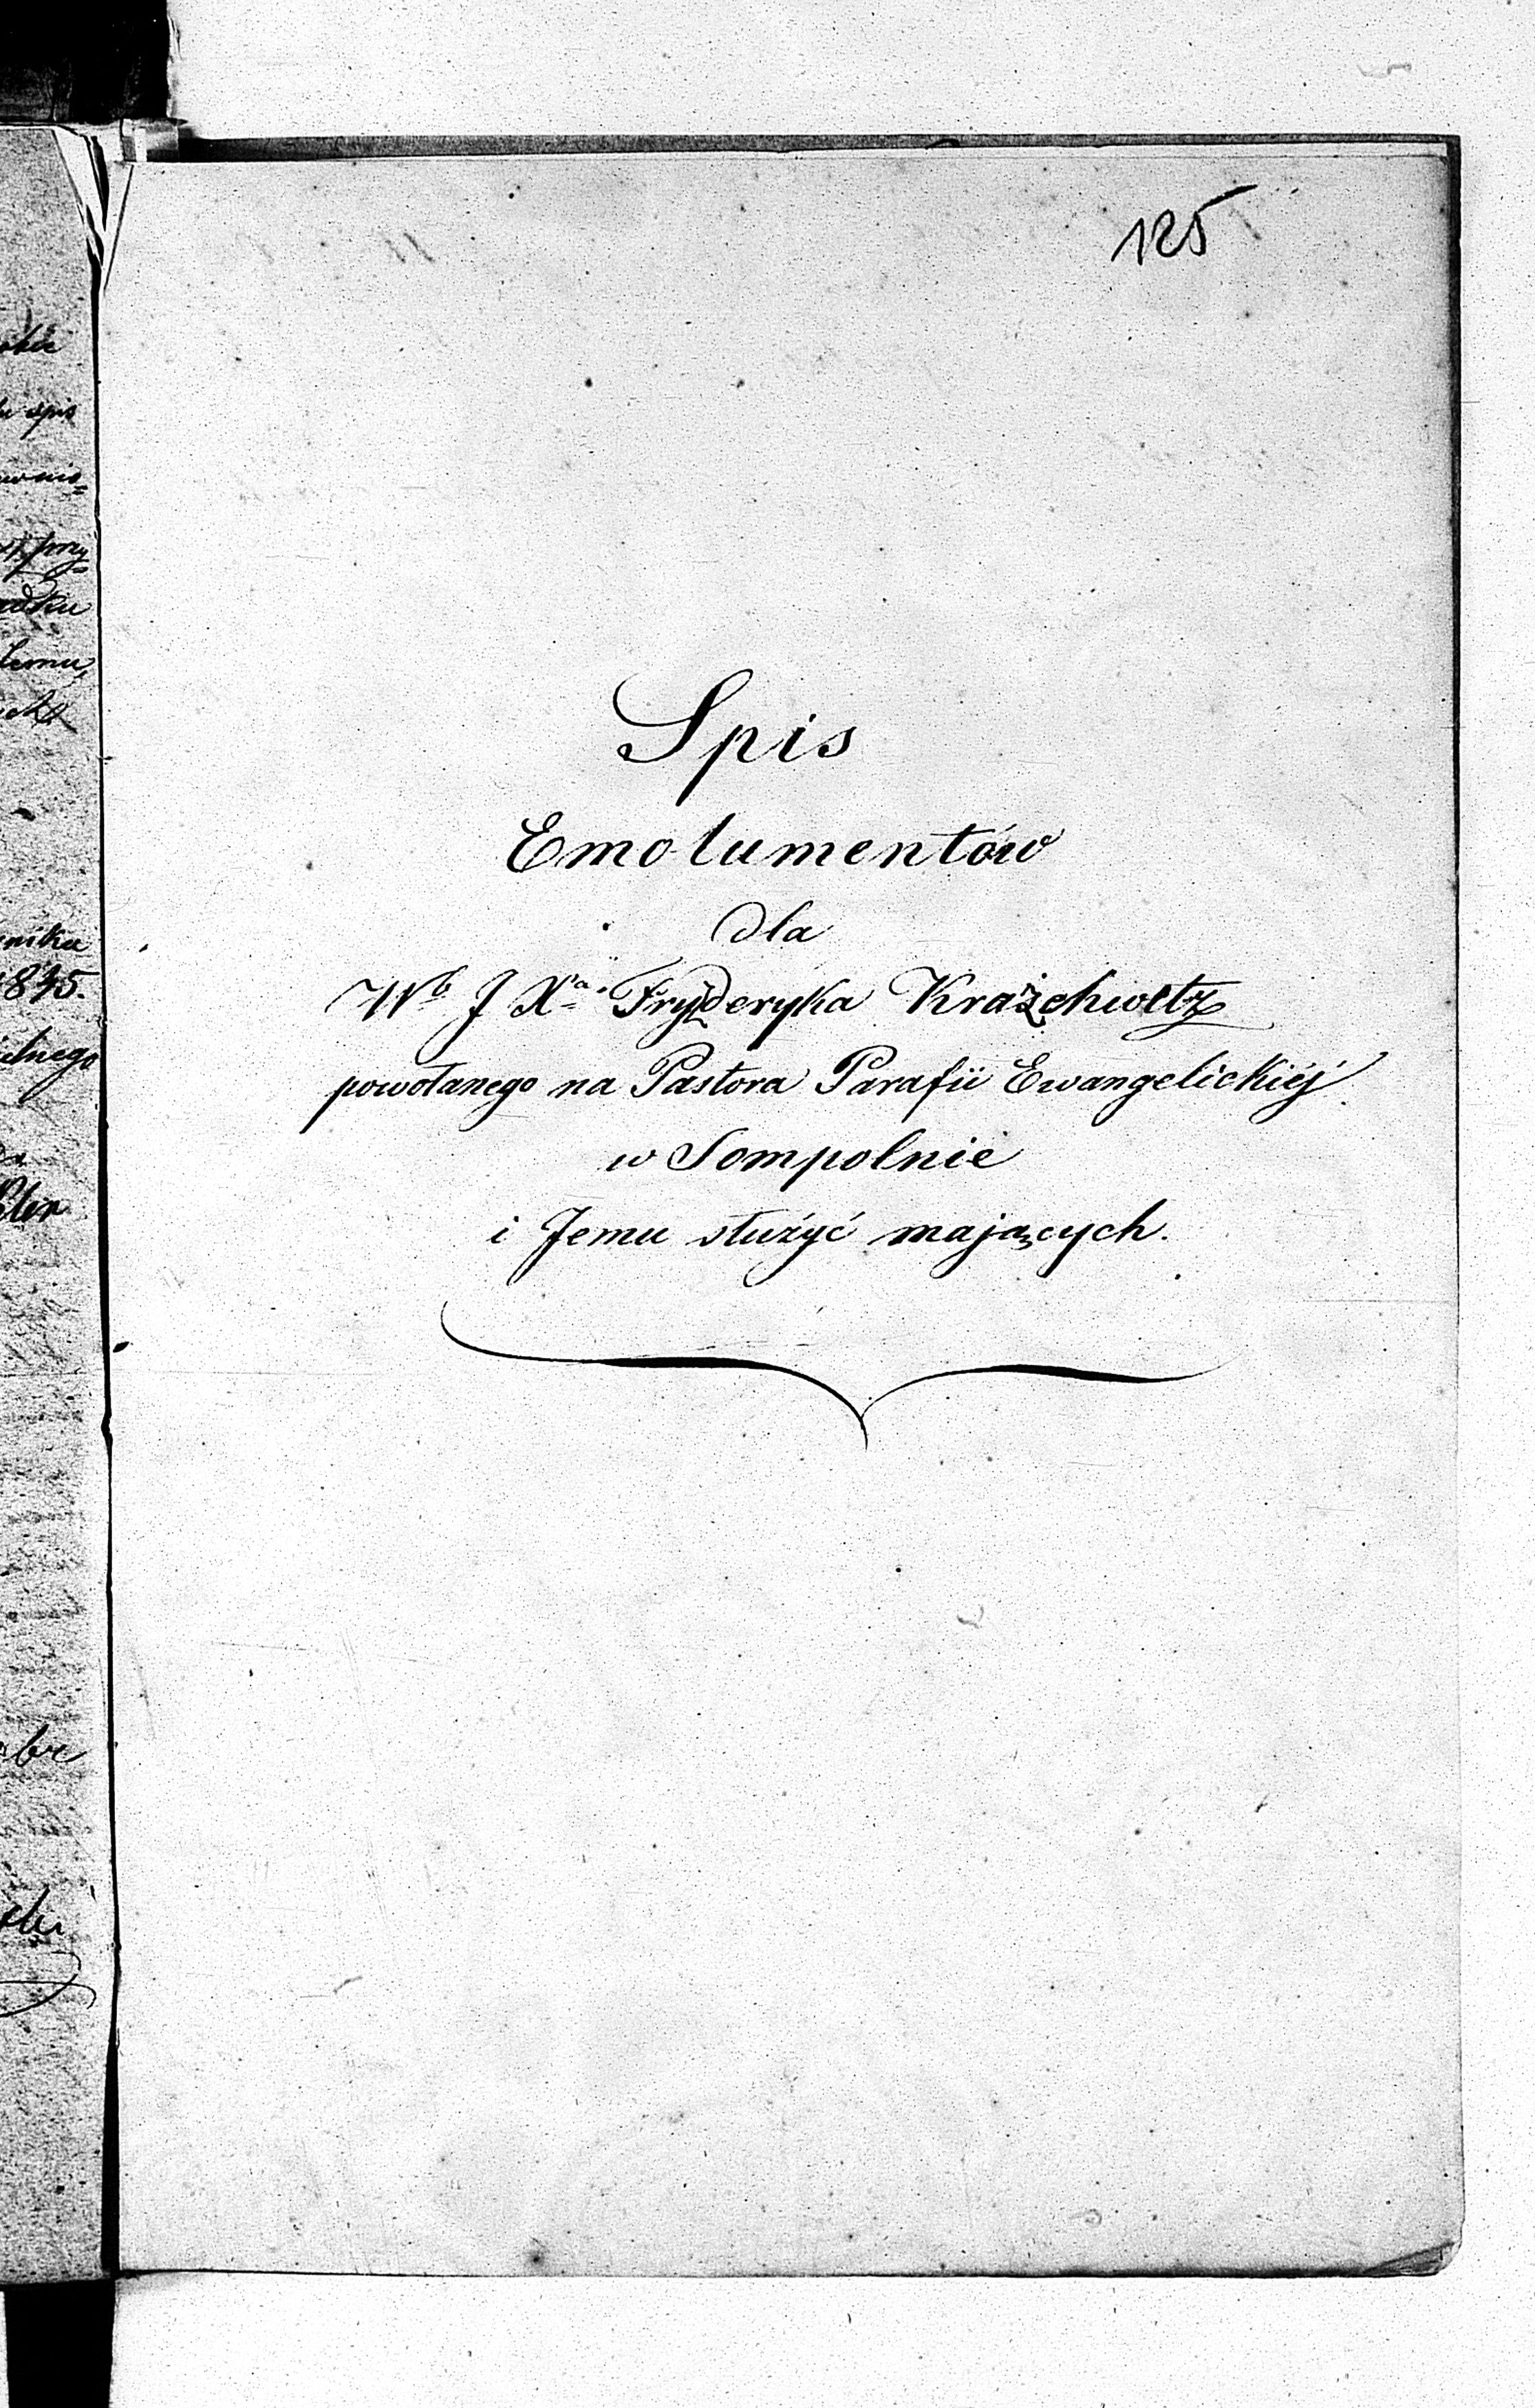 125
Spis
Emolumentów
dla
Wᵇ J Xᵃ Fryderyka
powołanego na Pastora Parafii Ewangelickiéj
w Sompolnie
i Jemu służyć mających.
spis
1845.